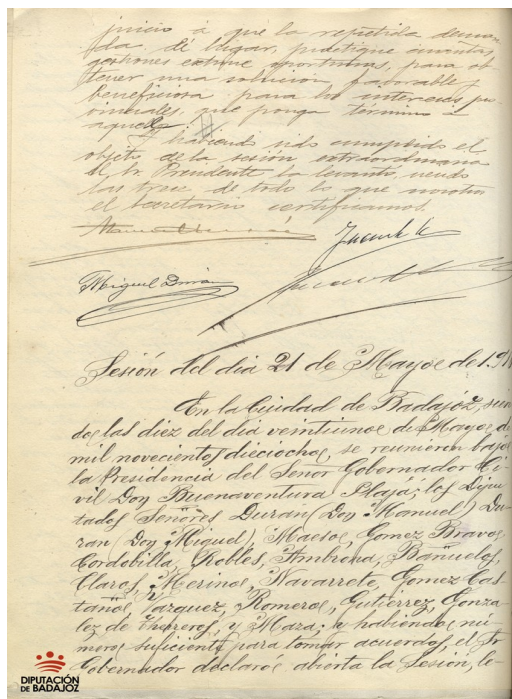 juicio á que la repetida deman-
da dé lugar, practique cuantas
gestiones estime oportunas, para ob-
tener una solución favorable y
beneficiosa para los intereses pro-
vinciales, que ponga término á
aquella.
Y habiendo sido cumplido el
objeto de la sesión extraordinaria
el Sr. Presidente la levantó, siendo
las trece, de todo lo que nosotros
el Secretario certificamos.
Miguel Durán
Sesión del dia 21 de Mayo de 191
En la Ciudad de Badajóz, sien
do las diez del dia veintiuno de Mayo de
mil novecientos dieciocho, se reunieron bajo
la Presidencia del Señor Gobernador Ci-
vil Don Buenaventura Plajá; los Dipu-
tados Señores Duran (Don Manuel) Du-
ran (Don Miguel), Maeso, Gomez Bravo,
Cordobilla, Robles, Ambrona, Bañuelos,
Claros, Merino, Navarrete, Gomez Cas-
taños, Vazquez, Romero, Gutiérrez, Gonza-
lez de y Maza; y habiendo nú-
mero suficiente para tomar acuerdos, el Sr
Gobernador declaró abierta la Sesión, le-
DIPUTACIÓN
DE BADAJOZ